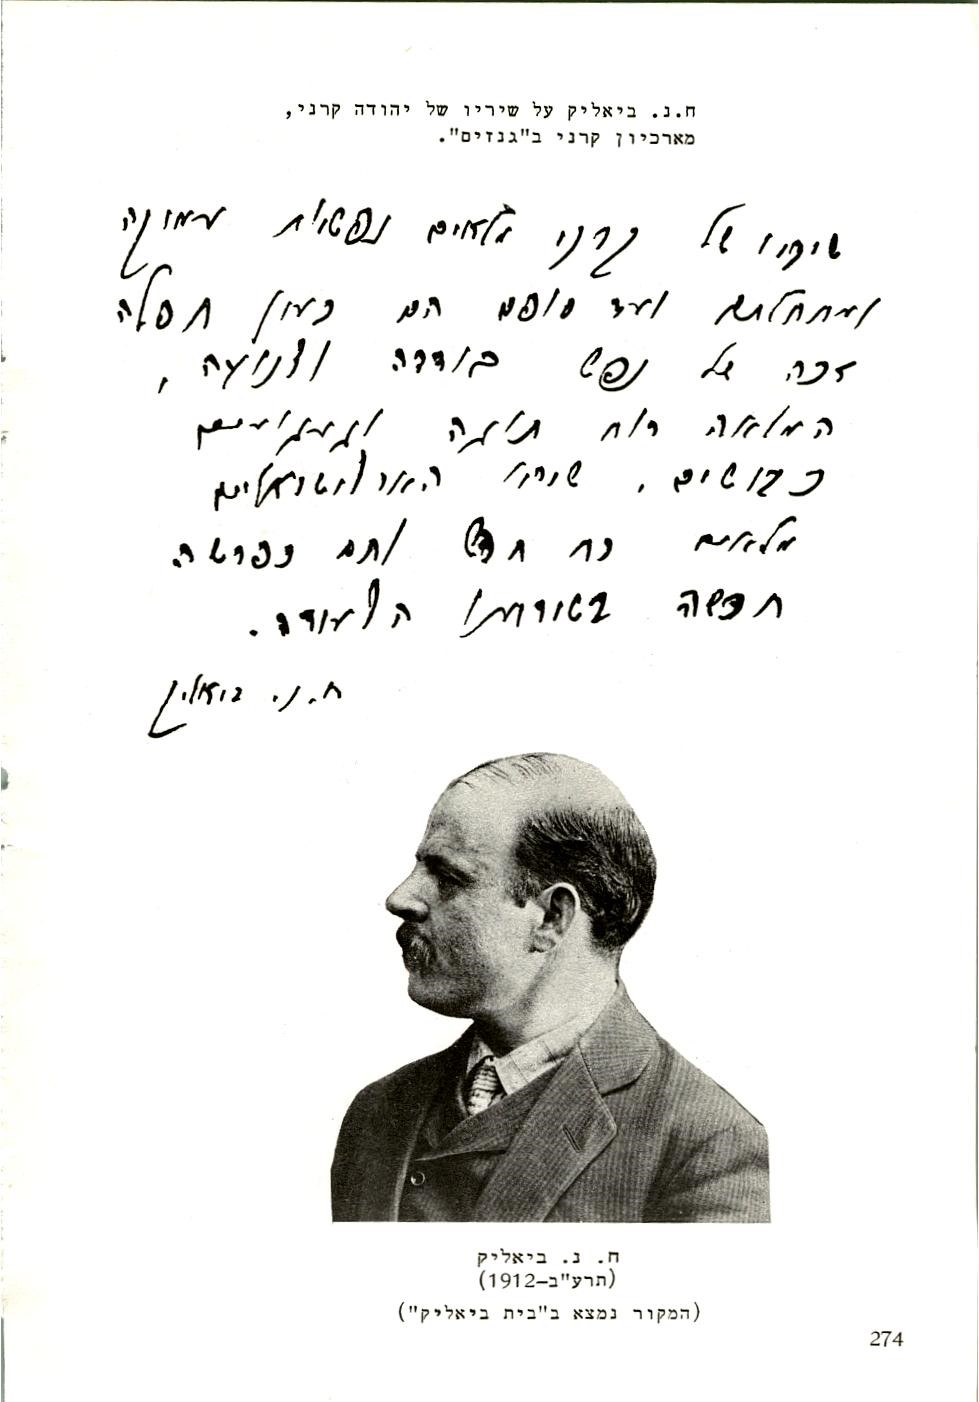 ח.נ. ביאליק על שיריו של יהודה קרני,
מארכיון קרני ב"גנזים".
שיריו של קרני מלאים נפשיות עמוקה
ומתחלתם ועד סופם הם כעין תפלה
זכה של נפש בודדה וצנועה,
המלאה רוח תוגה וגעגועים
כבושים. שיריו הארצישראליים
מלאים כח חדש והם כפרשה
חדשה בשירתנו הצעירה.
ח. נ. ביאליק
ח. נ. ביאליק
(תרע"ב–1912)
(המקור נמצא ב"בית ביאליק")
274